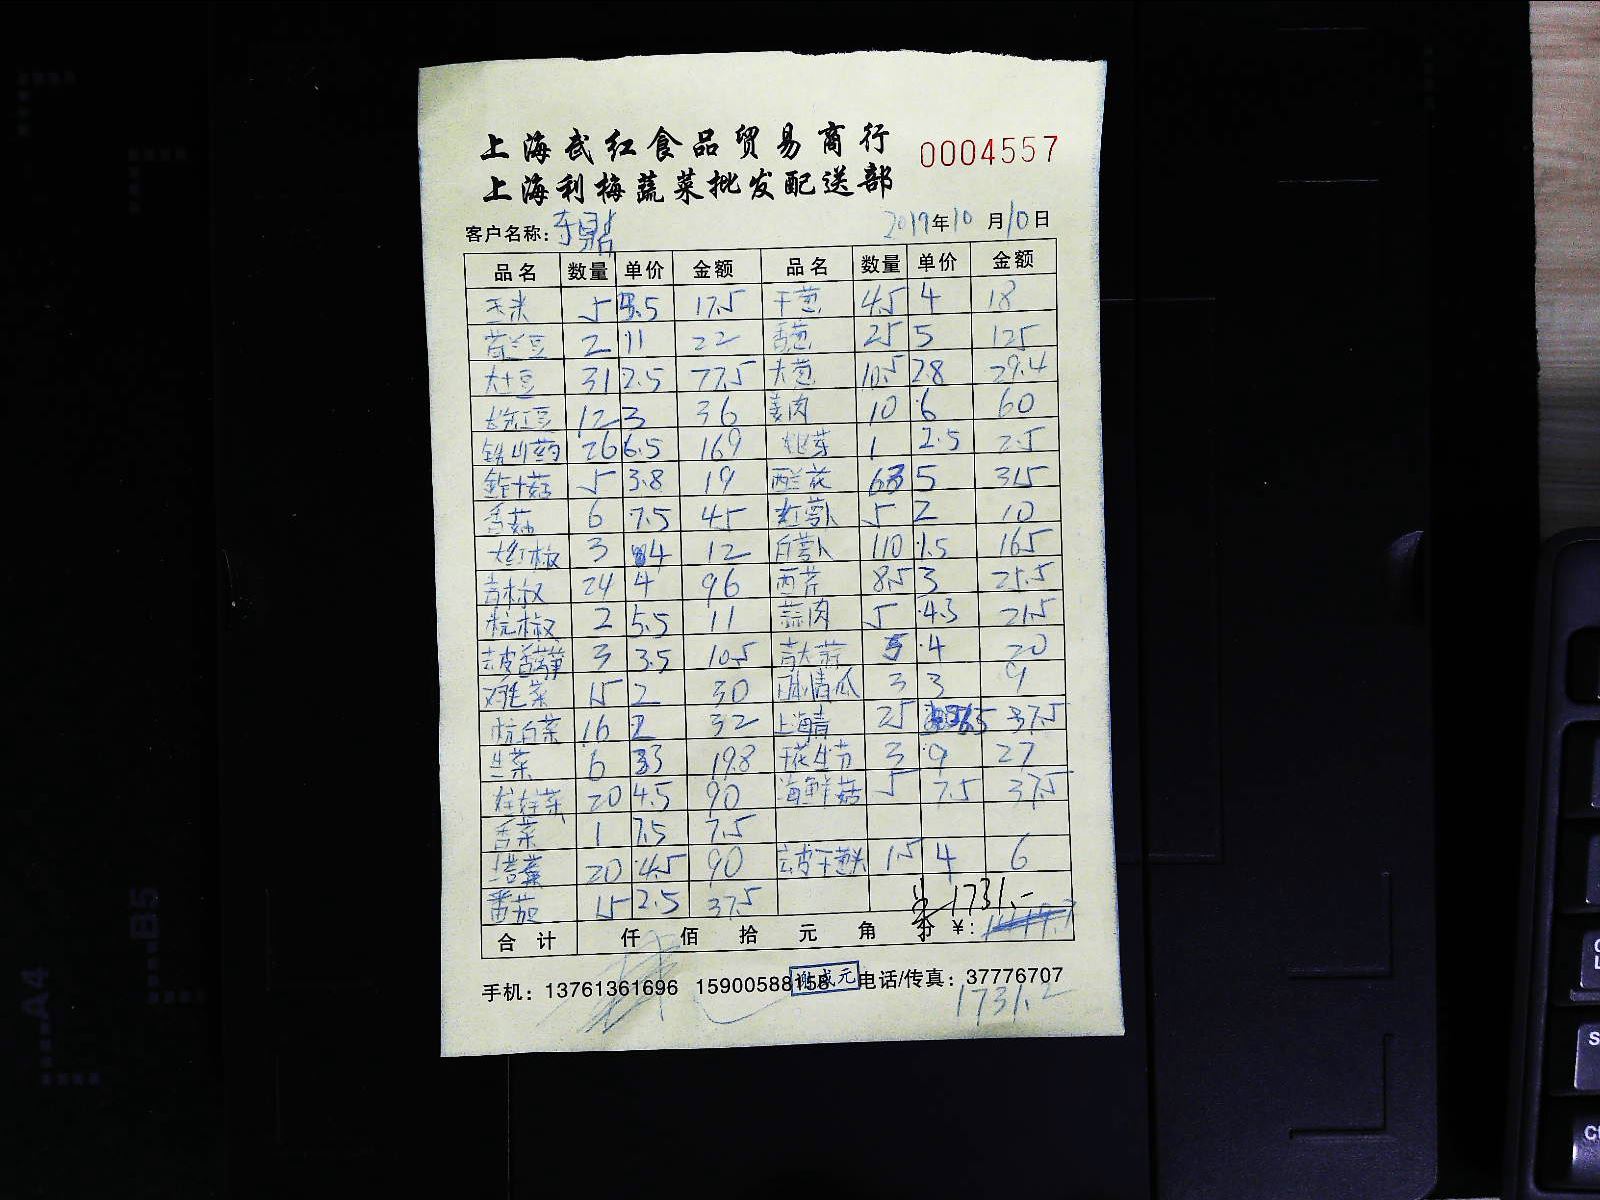 上海武红食品贸易商行
0004557
上海利梅蔬菜批发配送部
客户名称: 东鼎 2019年10月10日
品名 数量 单价 金额 品名 数量 单价 金额
玉米 5 3.5 17.5 干葱 4.5 4 18
荷兰豆 2 11 22 香葱 25 5 125
大土豆 31 2.5 77.5 大葱 10.5 2.8 29.4
12 3 36 姜肉 10 6 60
铁山药 26 6.5 169 1 2.5 2.5
5 3.8 19 西兰花 63 5 315
香菇 6 7.5 45 红萝卜 5 2 10
大红椒 3 4 12 白萝卜 110 1.5 165
青椒 24 4 96 西芹 8.5 3 25.5
杭椒 2 5.5 11 蒜肉 5 4.3 21.5
3 3.5 10.5 青大蒜 5 4 20
15 2 30 青瓜 3 3 9
杭白菜 16 2 32 上海青 25 37.5
生菜 6 3.3 19.8 3 9 27
娃娃菜 20 4.5 90 海鲜菇 5 7.5 37.5
香菜 1 7.5 7.5
20 4.5 90 去皮干葱头 1.5 4 6
番茄 15 2.5 37.5
1731.-
合计 仟 佰 拾 元 角 分 ¥:
手机: 13761361696 15900588158 电话/传真: 37776707
1731.2